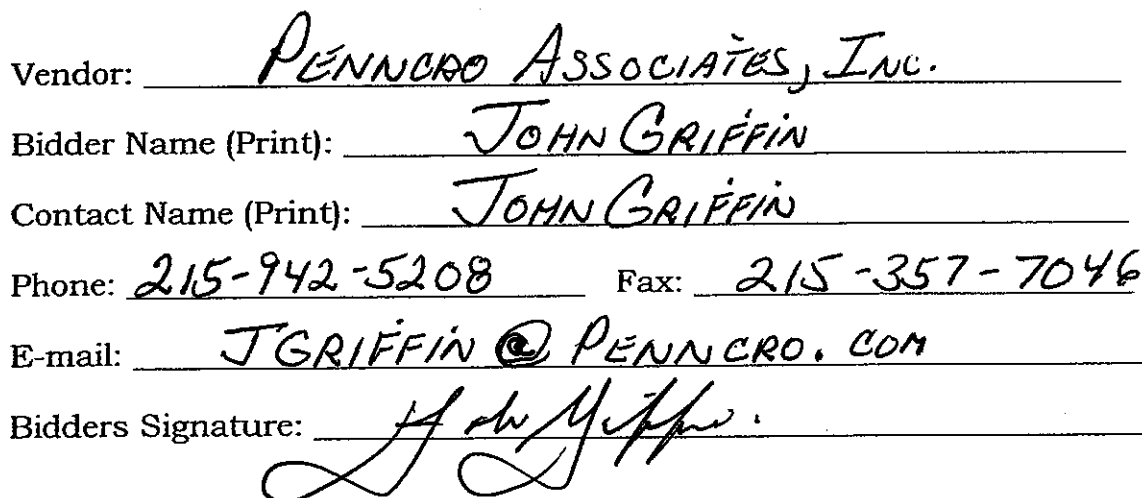 Vendor: PENNCRO ASSOCIATES, INC.
Bidder Name (Print): JOHN GRIFFIN
Contact Name (Print): JOHN GRIFFIN
Phone: 215-942-5208 Fax: 215-357-7046
E-mail: JGRIFFIN @ PENNCRO. COM
Bidders Signature: